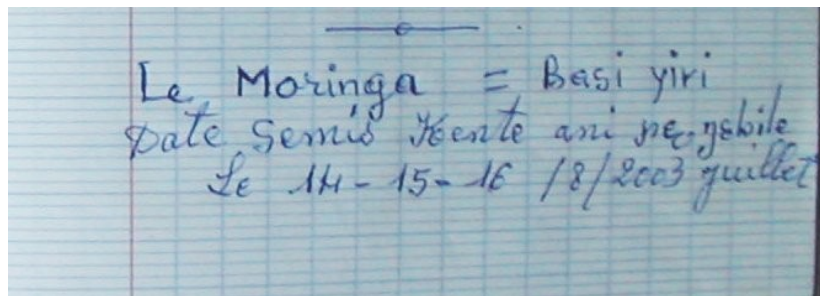 Le Moringa = Basi yiri
Date Semis Kente ani
Le 14-15-16 /8/2003 juillet